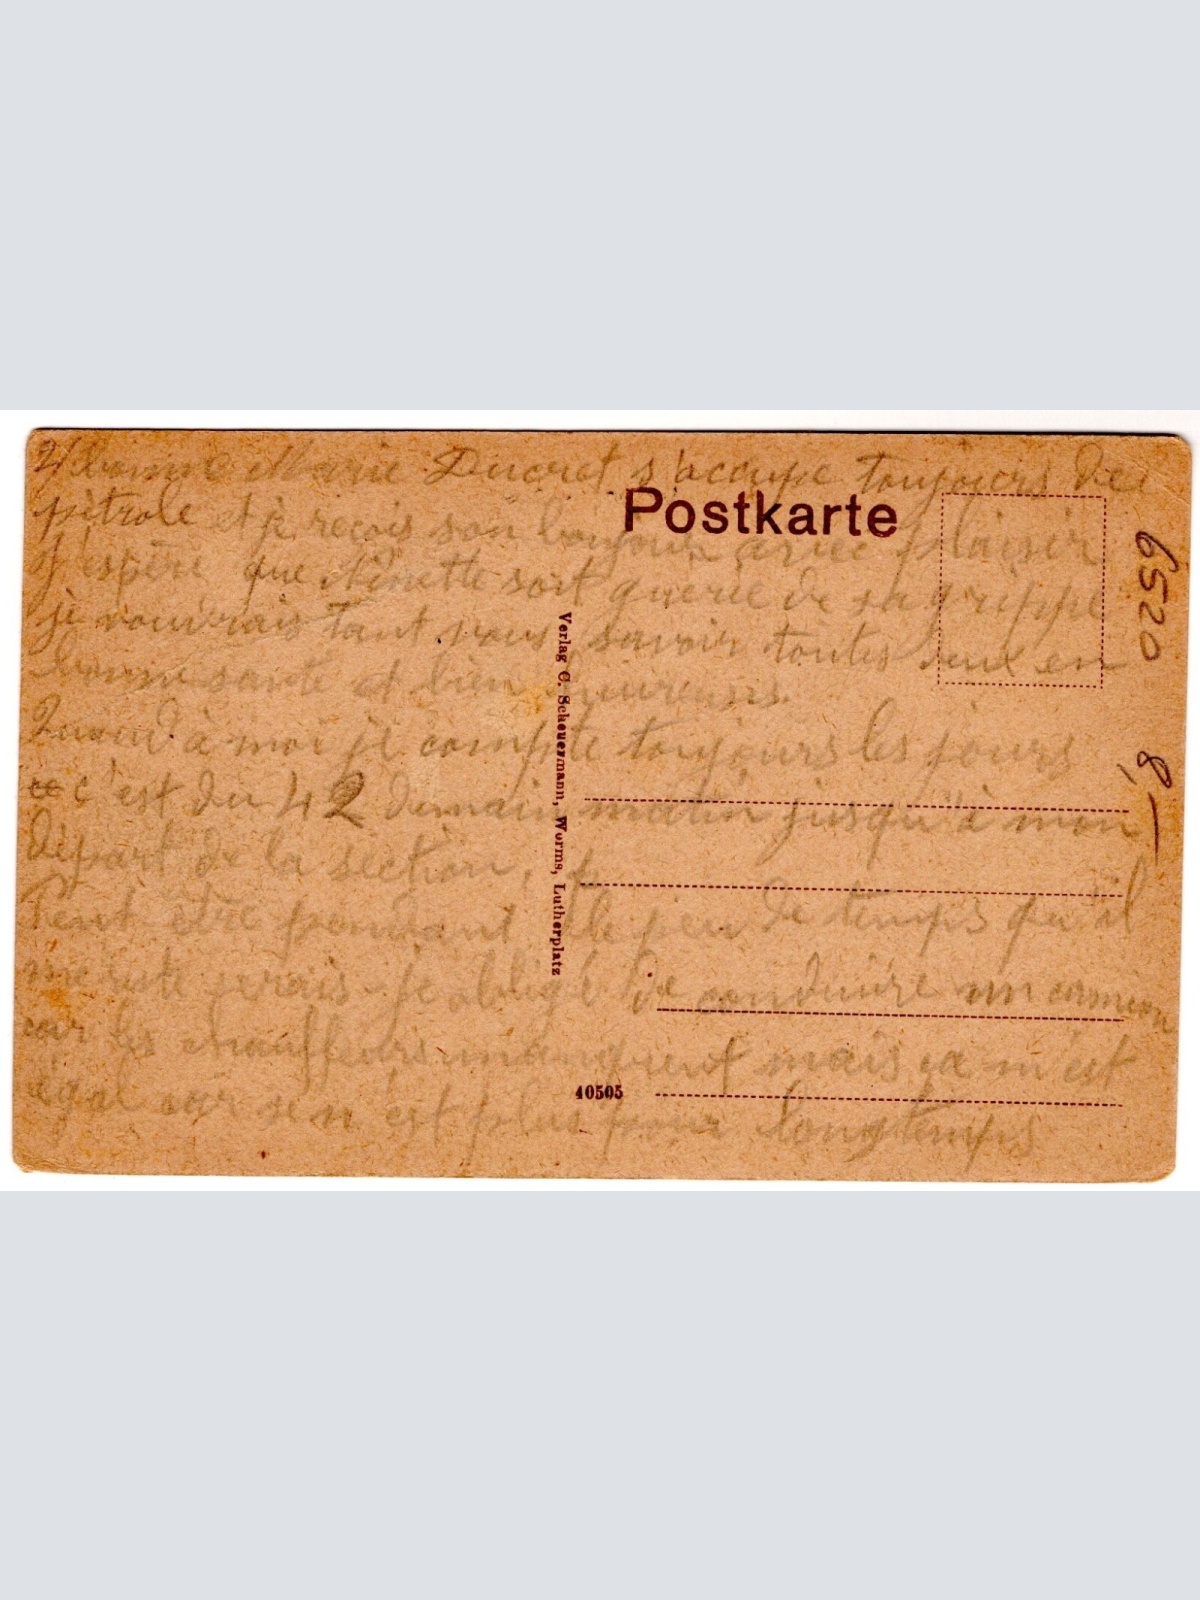 2/ bonne Marie Ducret s'occupe toujours de
pétrole et je reçois son bonjour avec plaisir
J'espère que Ninette soit guerie de sa grippe
je voudrais tant vous savoir toutes deux en
bonne santé et bien heureuses.
Quand à moi je compte toujours les jours
c'est du 42 demain matin jusqu'à mon
départ de la section,
Peut être pendant le peu de temps qu'il
me reste serais-je obligé de conduire un camion
car les chauffeurs manquent mais ça m'est
égal car se n'est plus pour longtemps
Postkarte
Verlag C. Scheuermann, Worms, Lutherplatz
40505
6520
8,—